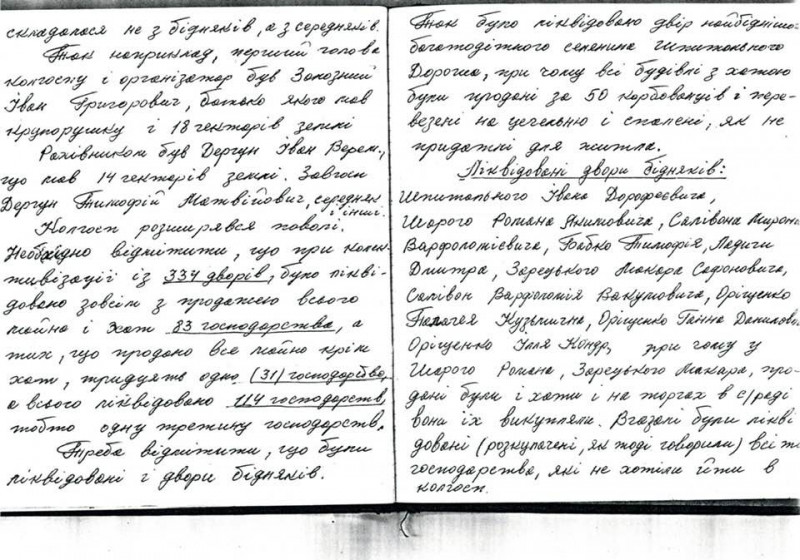 складалося не з бідняків, а з середняків.
Так наприклад, перший голова
колгоспу і організатор був Залозний
Іван Григорович, батько якого мав
крупорушку і 18 гектарів землі
Рахівником був Дергун Іван Верем.,
що мав 14 гектарів землі. Завгосп
Дергун Тимофій Матвійович, середняк
і інші.
Колгосп розширявся поволі.
Необхідно відмітити, що при колек-
тивізації із 334 дворів, було лікві-
довано зовсім з продажею всього
майна і хат 83 господарства, а
тих, що продано все майно крім
хат, тридцять одно (31) господарство,
а всього ліквідовано 114 господарств,
тобто одну третину господарств.
Треба відмітити, що були
ліквідовані і двори бідняків.
Так було ліквідовано двір найбіднішо-
багатодітного селянина Шпитального
Дороша, при чому всі будівлі з хатою
були продані за 50 карбованців і пере-
везені на цегельню і спалені, як не
придатні для житла.
Ліквідовані двори бідняків:
Шпитального Івана Дорофеєвича,
Шарого Романа Якимовича, Салівона Мирона
Варфоломієвича, Бабко Тимофія, Ладичи
Дмитра, Зарецького Макара Сафоновича,
Салівон Варфоломія Вакумовича, Оріщенко
Палагея Кузьмична, Оріщенко Ганна Данилов
Оріщенко Ілля Кондр, при чому у
Шарого Романа, Зарецького Макара, про-
дані були і хати і на торгах в с/раді
вони їх викупляли. Взагалі були лікві
довані (розкулачені, як тоді говорили) всі т
господарства, які не хотіли йти в
колгосп.